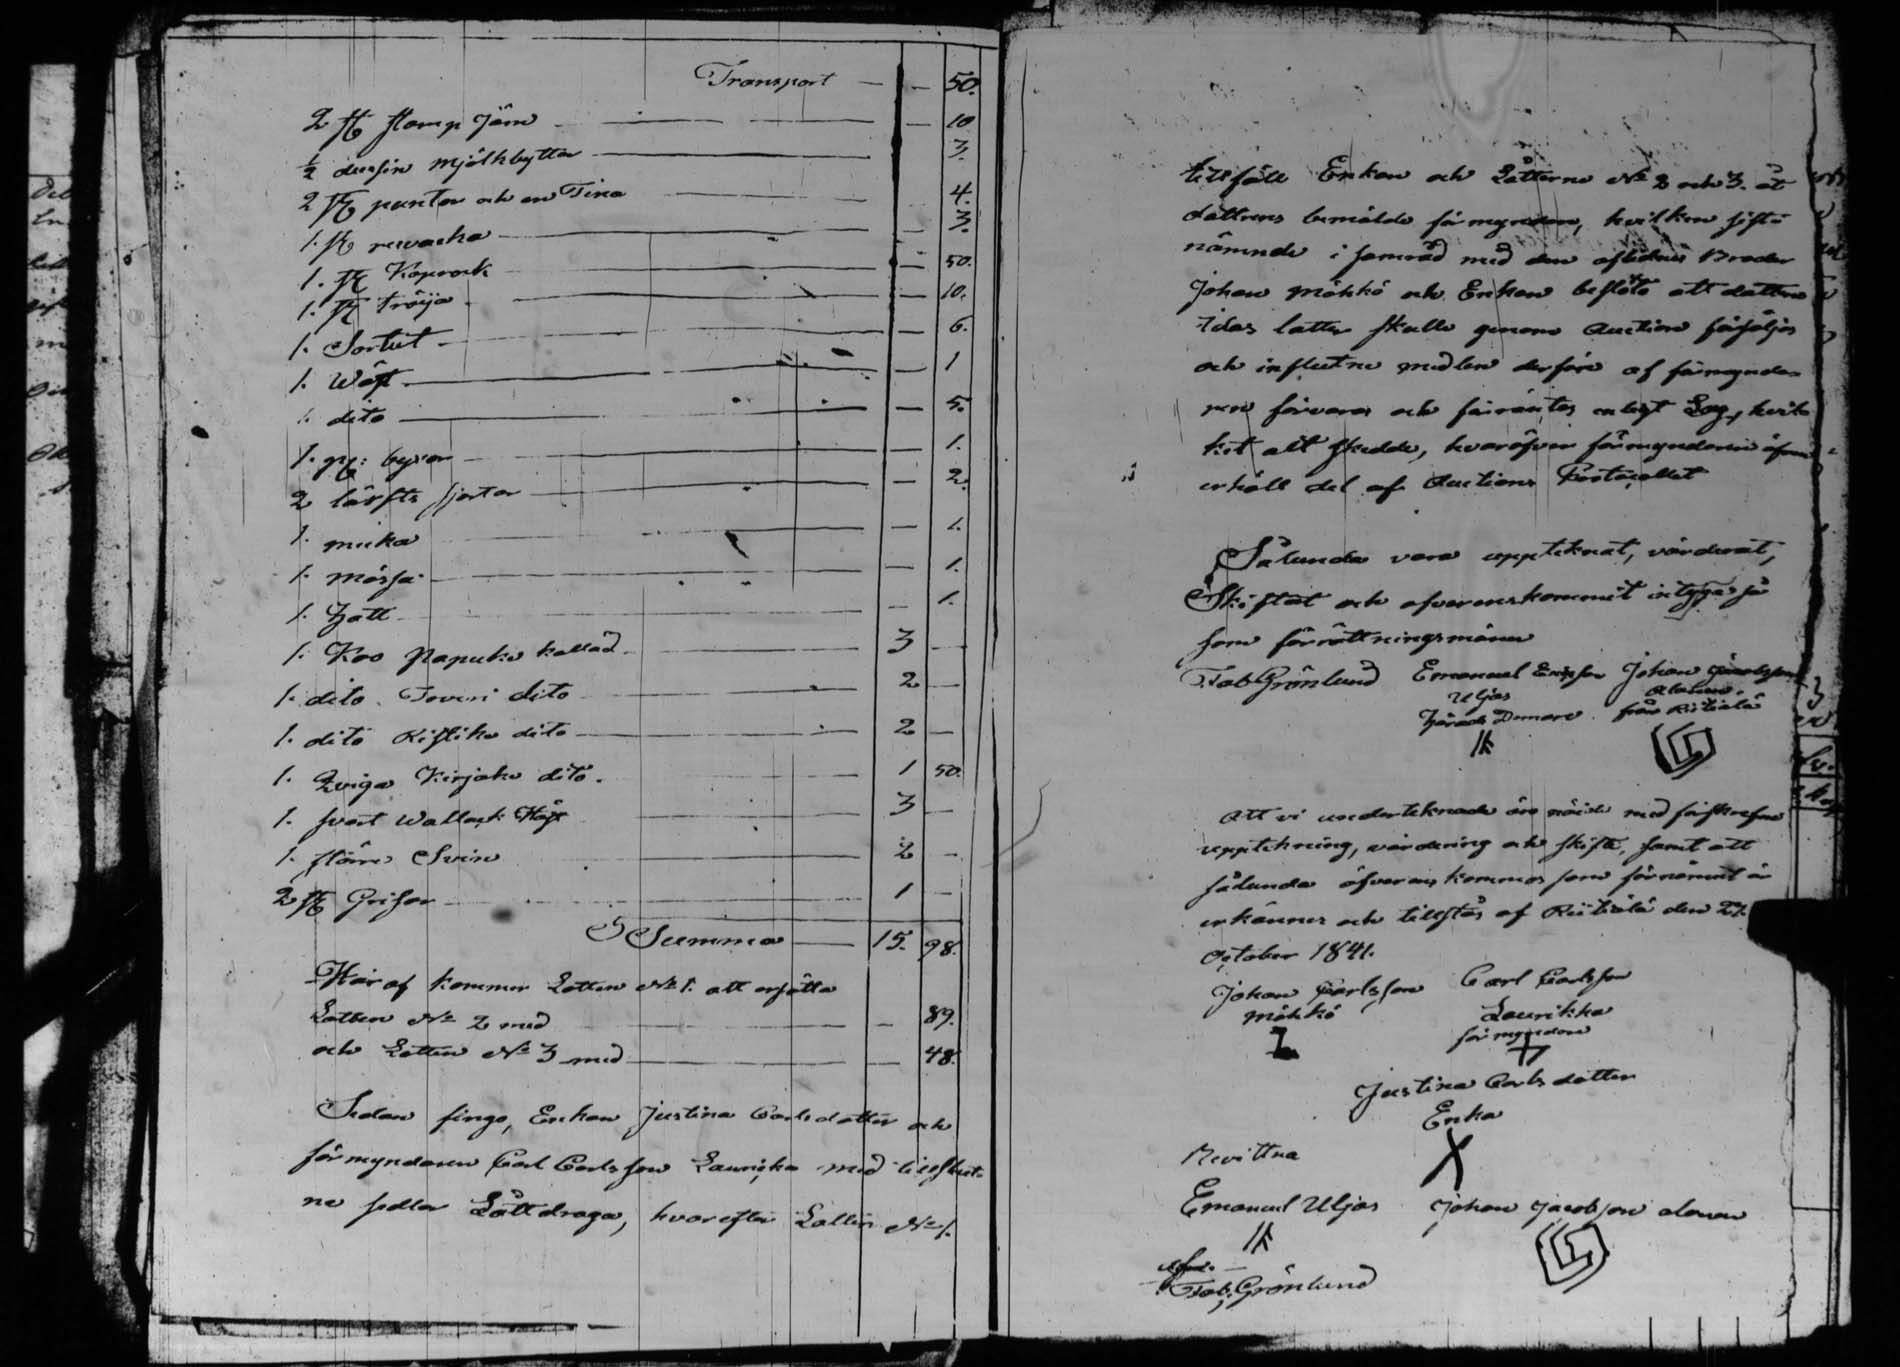 Transport — — 50.
2 st stamp Järn — 10
½ dussin mjölkbyttor — 3.
2 st puntor och en Tina — 4.
1. st — 3.
1. st Kaprock — 50.
1. st tröija — 10.
1. Sortut — 6.
1. Wäst — 1
1. dito — 5.
1. pr: byxor — 1.
2 lärfts skjortor — 2.
1. — 1.
1. mössa — 1.
1. Hatt — 1.
1. Koo Papuko kallad — 3 —
1. dito Toveri dito — 2 —
1. dito Kistiko dito — 2 —
1. Qviga Kirjako dito. 1 50.
1. svart Wallack 3 —
1. större Svin 2 —
2 st Grisar — 1 —
Summa — 15. 98.
Häraf kommer Lotten No 1. att ersätta
Lotten No 2 med — 89.
och Lotten No 3 med — 48.
Sedan fingo, Enkan Justina Carlsdotter och
förmyndaren Carl Carlsson Laurikka med tillslut-
ne sedlar Lått draga, hvarefter Lotten No 1.
tillföll Enkan och Lotterne No 2 och 3. åt
dottrens bemälde förmyndare, hvilken sist-
nämnde i samråd med den aflidnes Broder
Johan Möhkö och Enkan beslöto att dottren
Idas lotter skulle genom Auction försäljas
och influtne medlen derföre af förmynda-
ren förvaras och förräntas enligt Lag, hvil-
ket allt skedde, hvaröfver förmyndaren äfven
erhöll del af Auctions Protocollet
Sålunda vara upptecknat, värderat,
Skiftat och öfverenskommit intyga så
som förrättningsmänner
Tob Grönlund Emanuel Ericsson Johan Jacobsson
Uljas Alanen
Härads Domare från Riitiälä
Att vi undertecknade äro nöjde med förskrefne
uppteckning, värdering och skifte, samt att
sålunda öfverenskommos som förnämnt är
erkännes och tillstås af Riitiälä den 27.
October 1841.
Johan Carlsson Carl Carlsson
Möhkö Laurikka
förmyndare
Justina Carlsdotter
Enka
Bevittna
Emanuel Uljas Johan Jacobsson Alanen
Tob. Grönlund